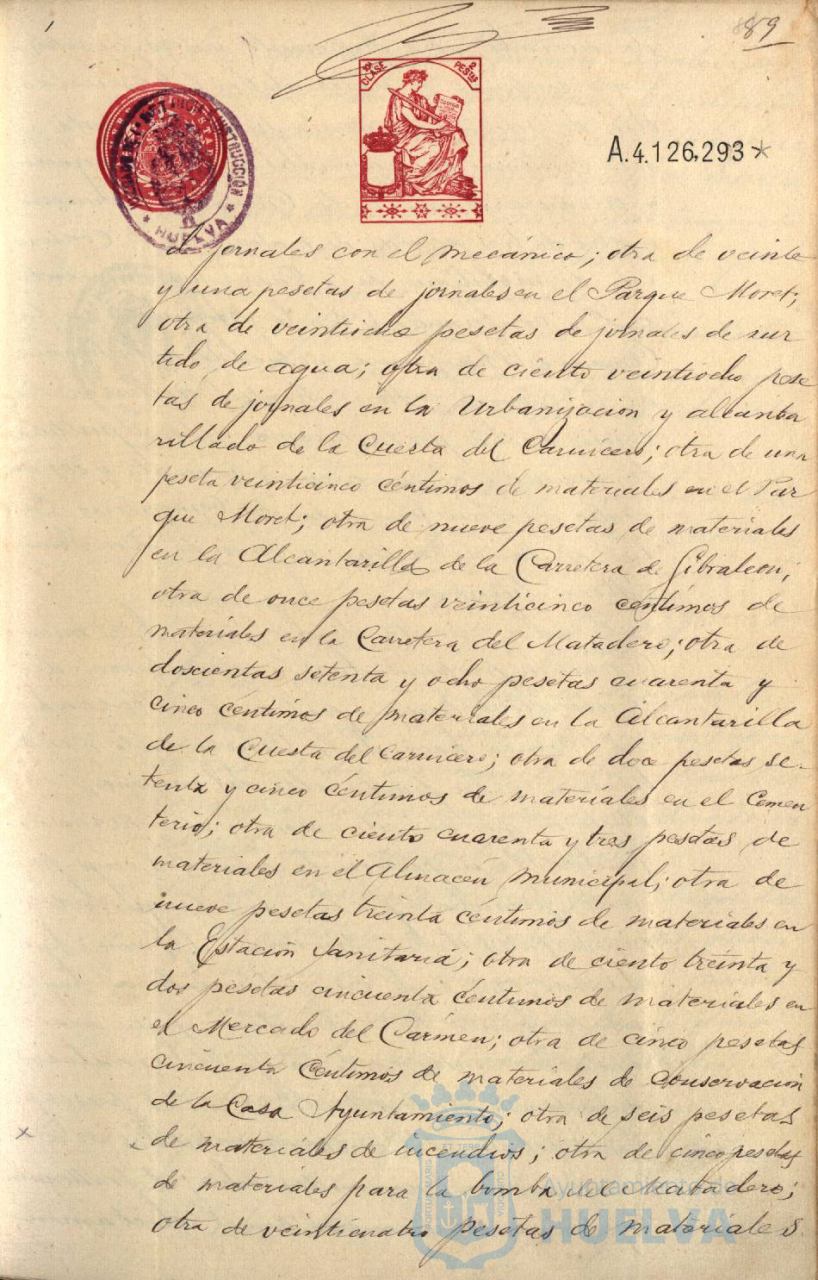 89
10ª CLASE 2 PESTAS
A.4.126,293*
INSTRUCCIÓN
HUELVA
de jornales con el mecánico; otra de veinte
y una pesetas de jornales en el Parque Moret;
otra de veintiocho pesetas de jornales de sur
tido de agua; otra de ciento veintiocho pese
tas de jornales en la Urbanizacion y alcanta
rillado de la Cuesta del Carnicero; otra de una
peseta veinticinco céntimos de materiales en el Par
que Moret; otra de nueve pesetas de materiales
en la Alcantarilla de la Carretera de Gibraleon;
otra de once pesetas veinticinco centimos de
materiales en la Carretera del Matadero; otra de
doscientas setenta y ocho pesetas cuarenta y
cinco céntimos de materiales en la Alcantarilla
de la Cuesta del Carnicero; otra de doce pesetas se-
tenta y cinco céntimos de materiales en el Cemen
terio; otra de ciento cuarenta y tres pesetas de
materiales en el Almacén Municipal; otra de
nueve pesetas treinta céntimos de materiales en
la Estación Sanitaria; otra de ciento treinta y
dos pesetas cincuenta céntimos de materiales en
el Mercado del Cármen; otra de cinco pesetas
cincuenta céntimos de materiales de conservacion
de la Casa Ayuntamiento; otra de seis pesetas
de materiales de incendios; otra de cinco pesetas
de materiales para la bomba del Matadero;
otra de veinticuatro pesetas de materiales
Ayuntamiento de
HUELVA